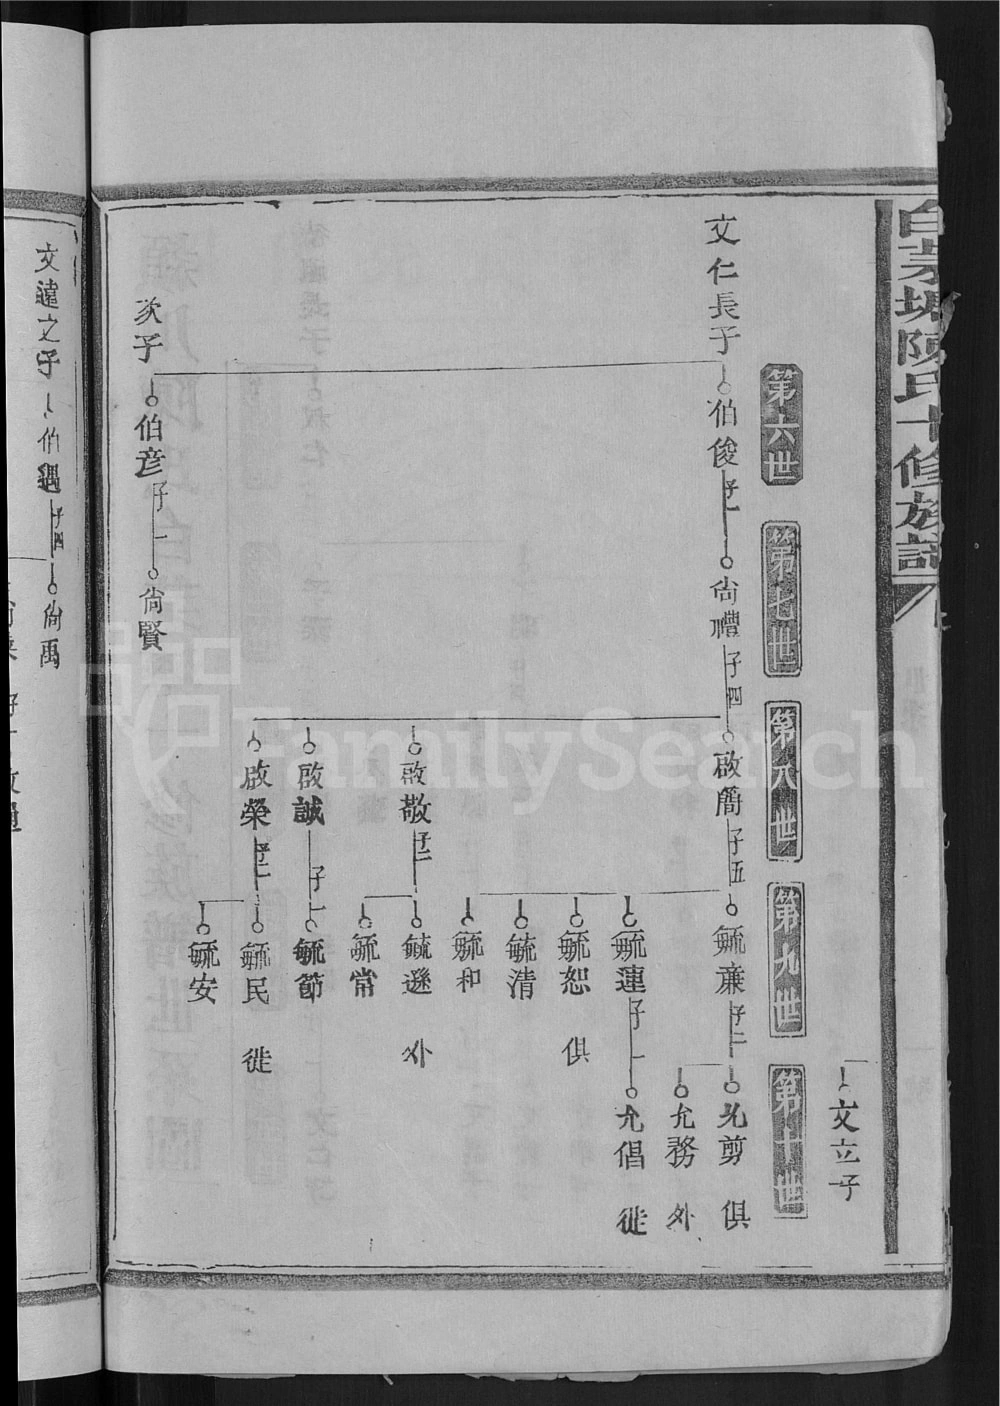 白茅塘陳氏十修族譜 卷
文立子
第六世
第七世
第八世
第九世
第十世
文仁長子
伯俊 子一
尙禮 子四
啟簡 子五
毓亷 子二
允剪 俱
允務 外
毓蓮 子一
允倡 徙
毓恕 俱
毓清
毓和
啟敬 子二
毓遜 外
毓常
啟誠 子一
毓節
啟榮 子二
毓民 徙
毓安
次子
伯彦 子一
尙賢
文達之子
伯遇 子四
尙禹
FamilySearch